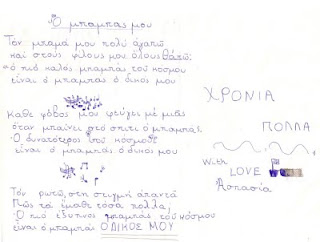 Ο μπαμπας μου
Τόν μπαμά μου πολύ αγαπώ
και στούς φίλους μου όλους θάπώ:
ο πιό καλός μπαμπάς τού κόσμου
είναι ό μπαμπάς ό δικός μου
Κάθε φόβος μου φεύγει μέ μιάς
όταν μπαίνει στό σπίτι ό μπαμπάς.
Ο δυνατότερος τού κόσμου
είναι ό μπαμπάς ό δικός μου
Τόν ρωτώ, στη στιγμή απαντά
Πώς τά έμαθε τόσα πολλά;
Ο πιό έξυπνος μπαμπάς τού κόσμου
είναι ό μπαμπάς Ο ΔΙΚΟΣ ΜΟΥ
ΧΡΟΝΙΑ
ΠΟΛΛΑ
With
LOVE
Ασπασία